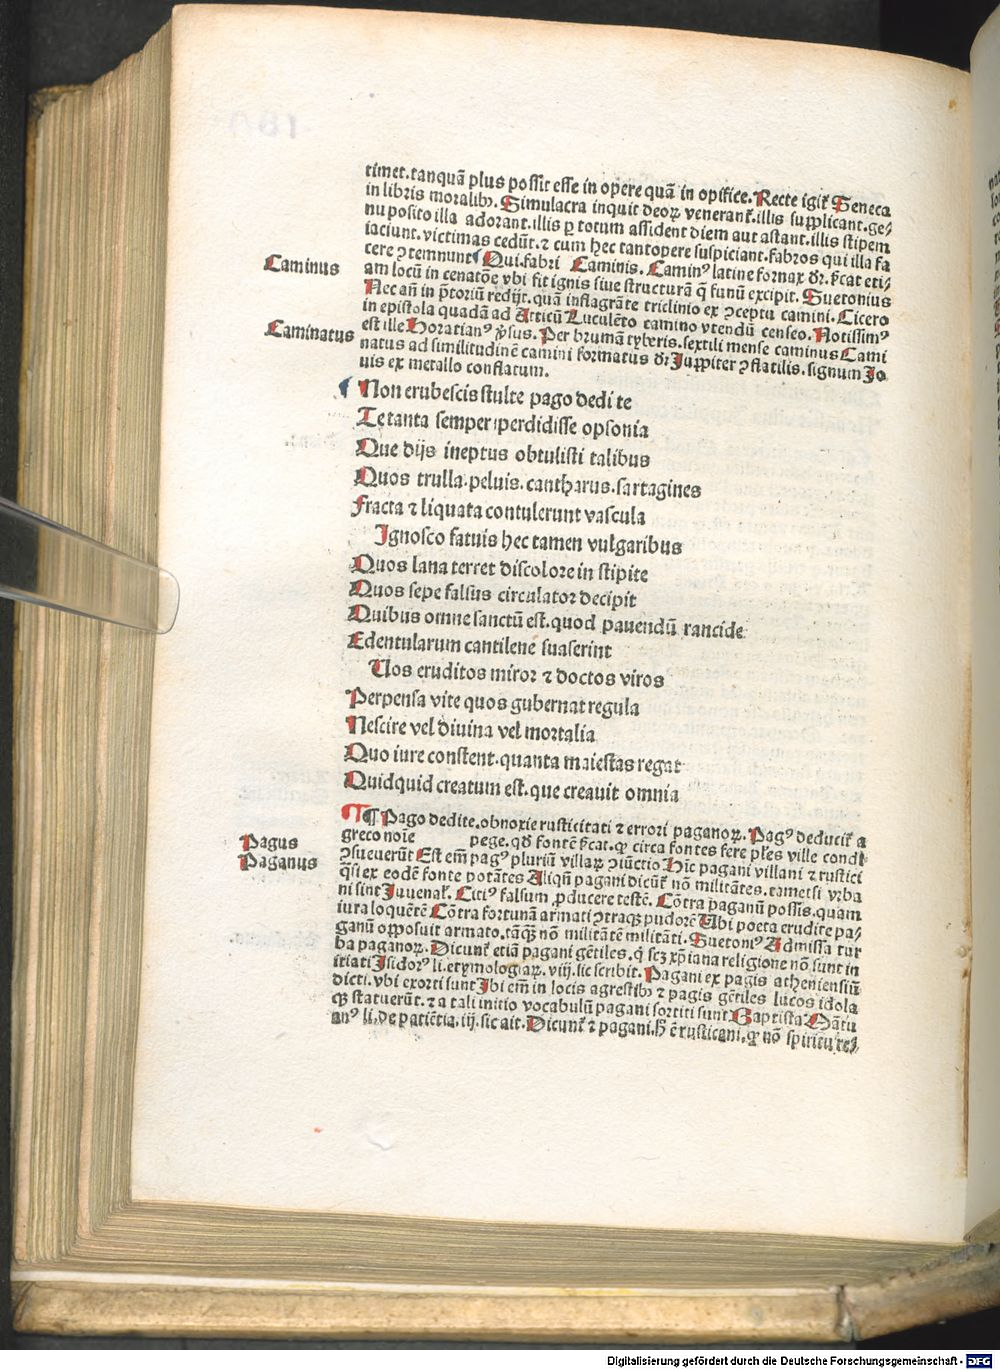 timet.tanquã plus possit esse in opere quã in opifice. Recte igit̃ Seneca
in libris moralibꝫ. Simulacra inquit deoꝝ venerant̃. illis supplicant. ge⸗
nu posito illa adorant. illis ꝑ totum assident diem aut astant. illis stipem
iaciunt. victimas cedũt. ⁊ cum hec tantopere suspiciant. fabros qui illa fa
cere ꝯtemnunt Qui fabri Caminis. Caminꝰ latine fornax dr̃. p̃cat eti⸗
Caminus
am locũ in cenatõe vbi fit ignis siue structurã q̃ fumũ excipit. Suetonius
Nec añ in p̃toriũ redijt. quã inflagrãte triclinio ex ꝯceptu camini. Cicero
in epistola quadã ad Atticũ Luculẽto camino vtendũ censeo. Notissimꝰ
est ille Horatianꝰ v̾sus. Per brumã tyberis. sextili mense caminus Cami
Caminatus
natus ad similitudinẽ camini formatus dr̃ Juppiter ꝯflatilis. signum Jo
uis ex metallo conflatum.
Non erubescis stulte pago dedi te
Te tanta semper perdidisse opsonia
Que dijs ineptus obtulisti talibus
Quos trulla. peluis. cantharus. sartagines
Fracta ⁊ liquata contulerunt vascula
Ignosco fatuis hec tamen vulgaribus
Quos lana terret discolore in stipite
Quos sepe falsus circulator decipit
Quibus omne sanctũ est. quod pauendũ rancide
Edentularum cantilene suaserint
Nos eruditos miror ⁊ doctos viros
Perpensa vite quos gubernat regula
Nescire vel diuina vel mortalia
Quo iure constent. quanta maiestas regat
Quidquid creatum est. que creauit omnia
¶ Pago dedite. obnoxie rusticitati ⁊ errori paganoꝝ. Pagꝰ deducit̃ a
Pagus
greco noĩe pege. qđ fontẽ p̃cat. qꝛ circa fontes fere pl̃es ville condi⸗
Paganus
ꝯsueuerũt Est em̃ pagꝰ pluriũ villaꝝ ꝯiũctio Hĩc pagani villani ⁊ rustici
q̃si ex eodẽ fonte potãtes Aliqñ pagani dicũt̃ nõ militãtes. tametsi vrba
ni sint Juuenal̃. Citiꝰ falsum ꝓducere testẽ. Cõtra paganũ possis. quam
iura loquẽtẽ Cõtra fortunã armati ꝯtraqꝫ pudorẽ Ubi poeta erudite pa⸗
ganũ opposuit armato. tãqꝫ nõ militãtẽ militãti. Suetoniꝰ Admissa tur
ba paganoꝝ. Dicunt̃ etiã pagani gẽtiles. q̃ scꝫ xp̃iana religione nõ sunt in
itiati Isidorꝰ li. etymologiaꝝ. viij. sic scribit. Pagani ex pagis atheniensiũ
dicti. vbi exorti sunt Ibi em̃ in locis agrestibꝫ ⁊ pagis gẽtiles lucos idola
qꝫ statuerũt. ⁊ a tali initio vocabulũ pagani sortiti sunt Baptista Mãtu
anꝰ li. de patiẽtia. iij. sic ait. Dicunt̃ ⁊ pagani. h̃ ẽ rusticani. qꝛ nõ spiritu re⸗
Digitalisierung gefördert durch die Deutsche Forschungsgemeinschaft - DFG